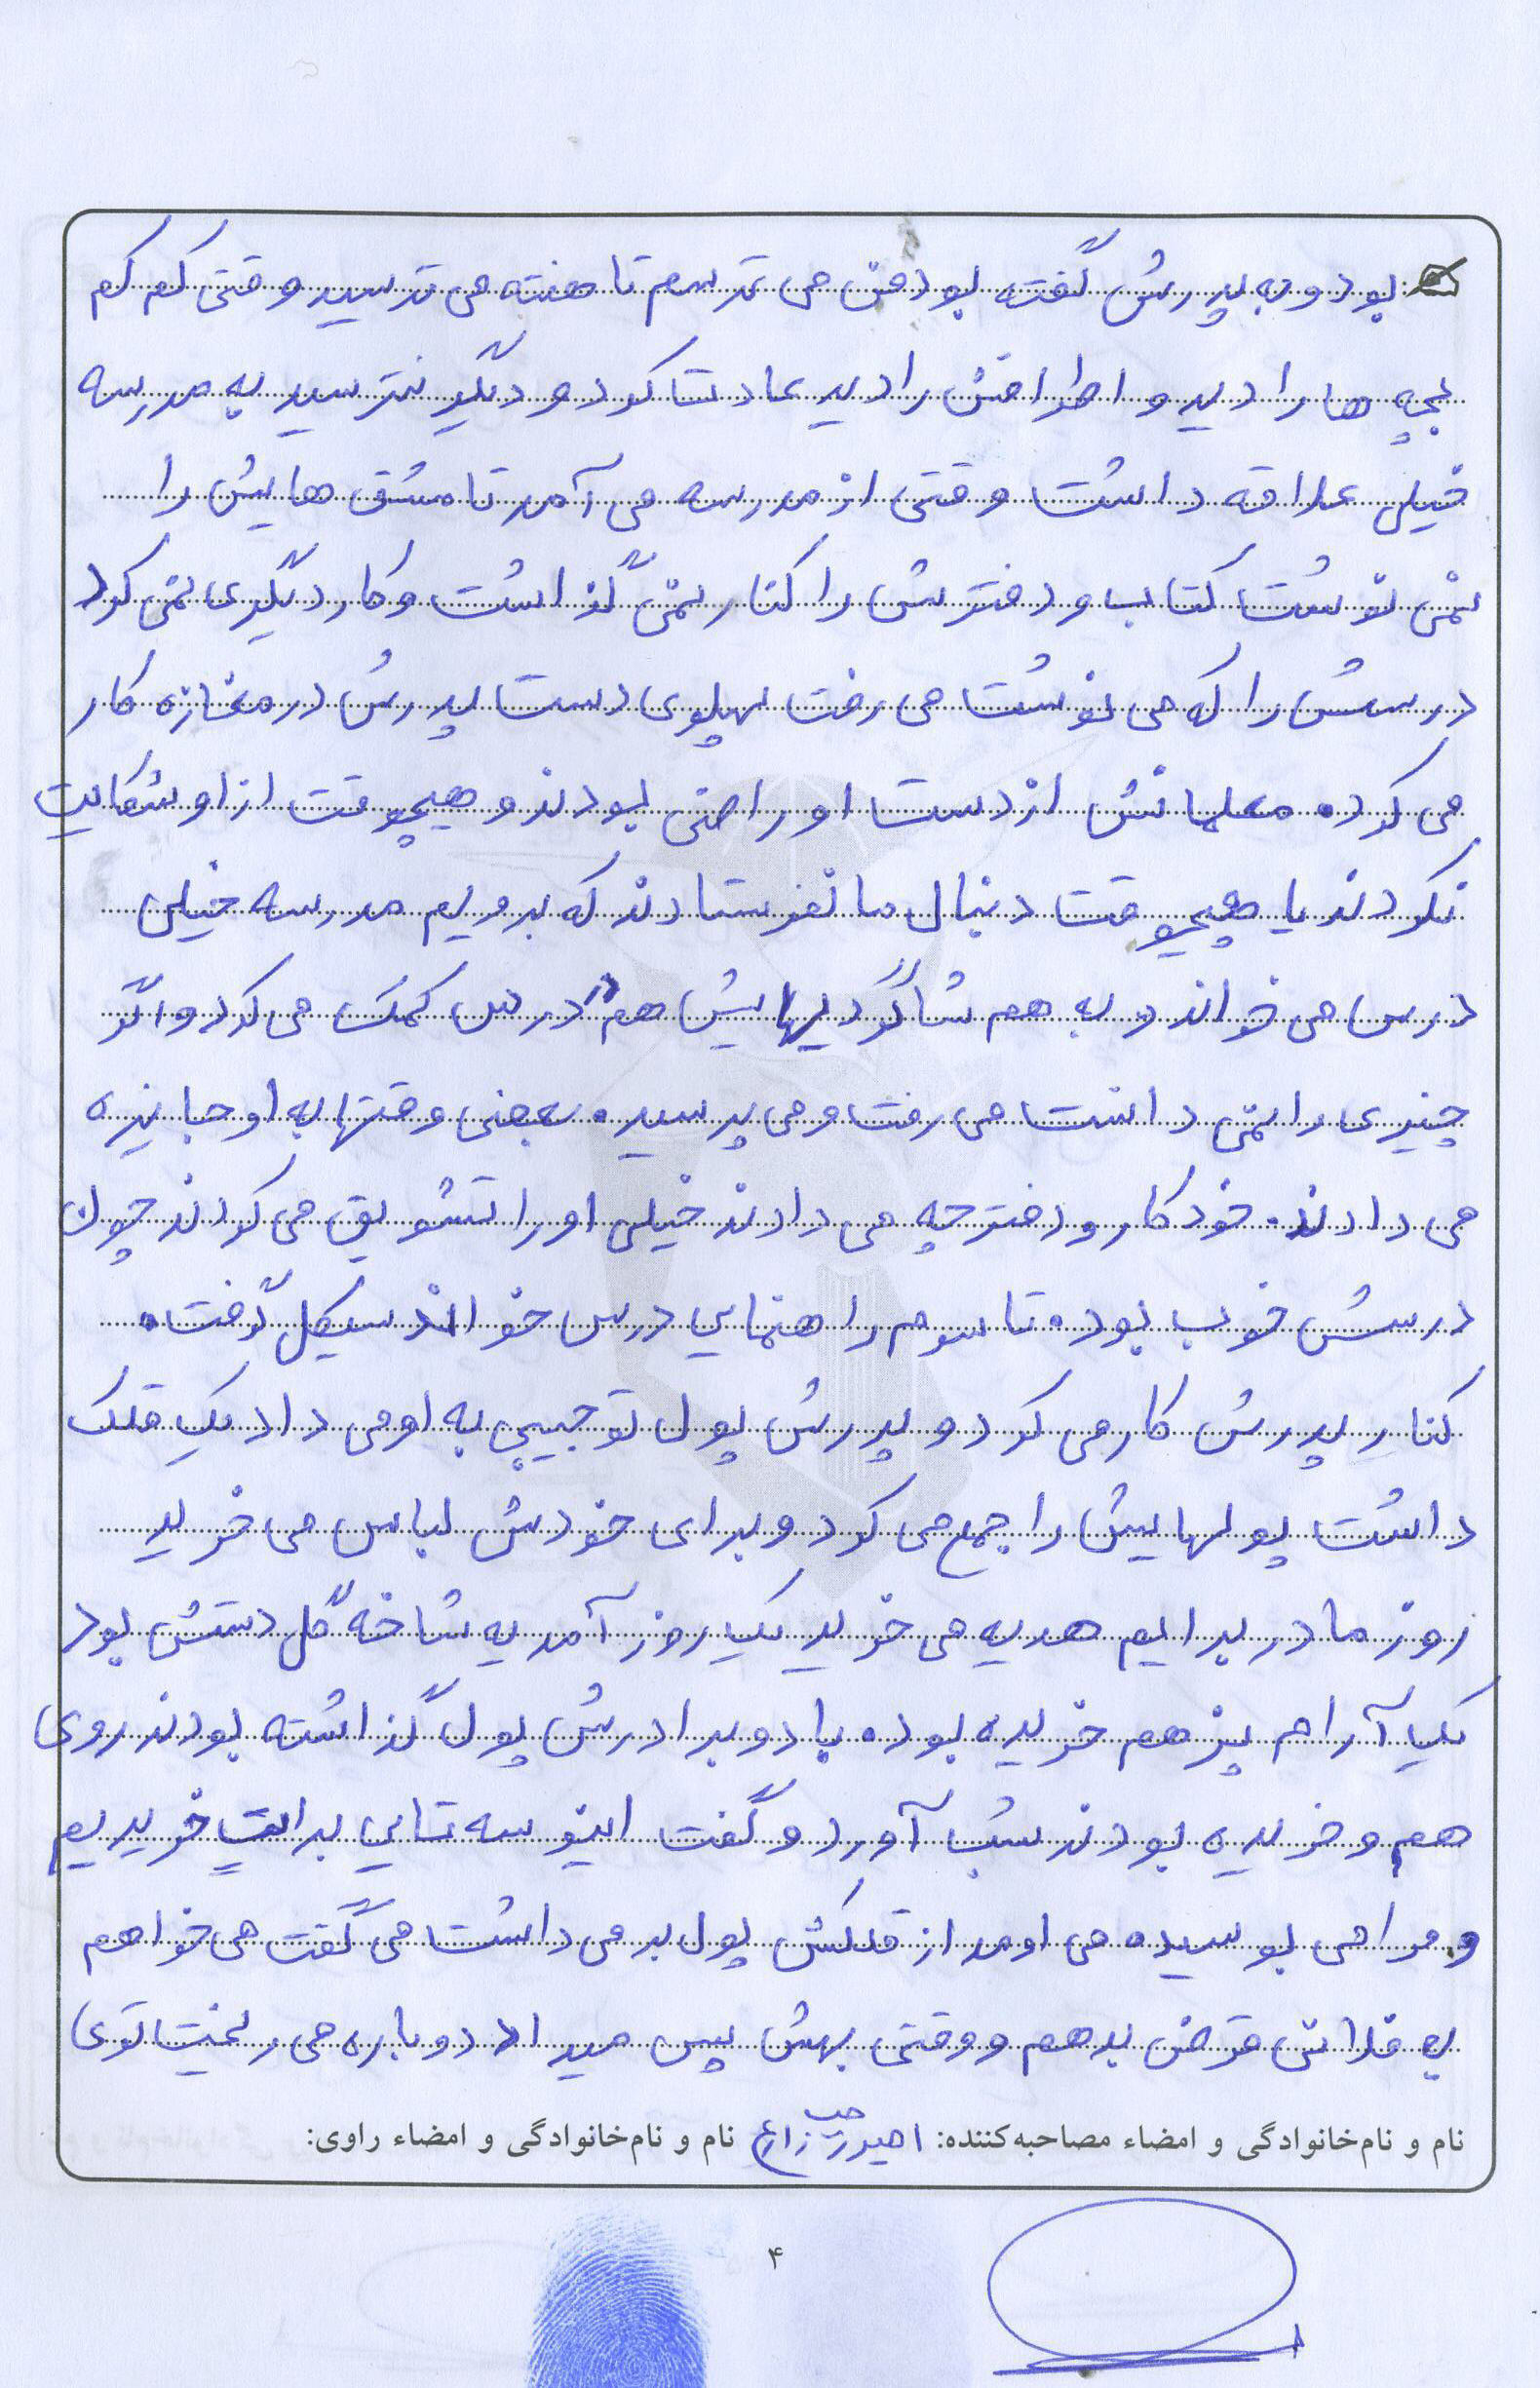 بود و به پدرش گفته بود من می ترسم تا هفته می ترسید وقتی کم کم
بچه ها را دید و اطرافش را دید عادت کرد و دیگر نترسید به مدرسه
خیلی علاقه داشت وقتی از مدرسه می آمد تا مشق هایش را
نمی نوشت کتاب و دفترش را کنار نمی گذاشت و کار دیگری نمی کرد
درسش را که می نوشت می رفت پهلوی دست پدرش در مغازه کار
می کرد. معلمانش از دست او راضی بودند و هیچوقت از او شکایت
نکردند یا هیچوقت دنبال ما نفرستادند که برویم مدرسه خیلی
درس می خواند و به هم شاگردیهایش هم در درس کمک می کرد و اگر
چیزی را نمی دانست می رفت و می پرسید. بعضی وقتها به او جایزه
می دادند. خودکار و دفترچه می دادند خیلی او را تشویق می کردند چون
درسش خوب بود. تا سوم راهنمایی درس خواند سیکل گرفت.
کنار پدرش کار می کرد و پدرش پول توجیبی به او می داد یک قلک
داشت پولهایش را جمع می کرد و برای خودش لباس می خرید
روز مادر برایم هدیه می خرید یک روز آمد یه شاخه گل دستش بود
یک آرام پز هم خریده بود. با دو برادرش پول گذاشته بودند روی
هم و خریده بودند شب آورد و گفت اینو سه تایی برات خریدیم
و مرا می بوسید. می اومد از قلکش پول بر می داشت می گفت می خواهم
به فلانی قرض بدهم و وقتی بهش پس میداد دوباره می ریخت توی
نام و نام‌خانوادگی و امضاء مصاحبه‌کننده: زارع نام و نام‌خانوادگی و امضاء راوی:
۴